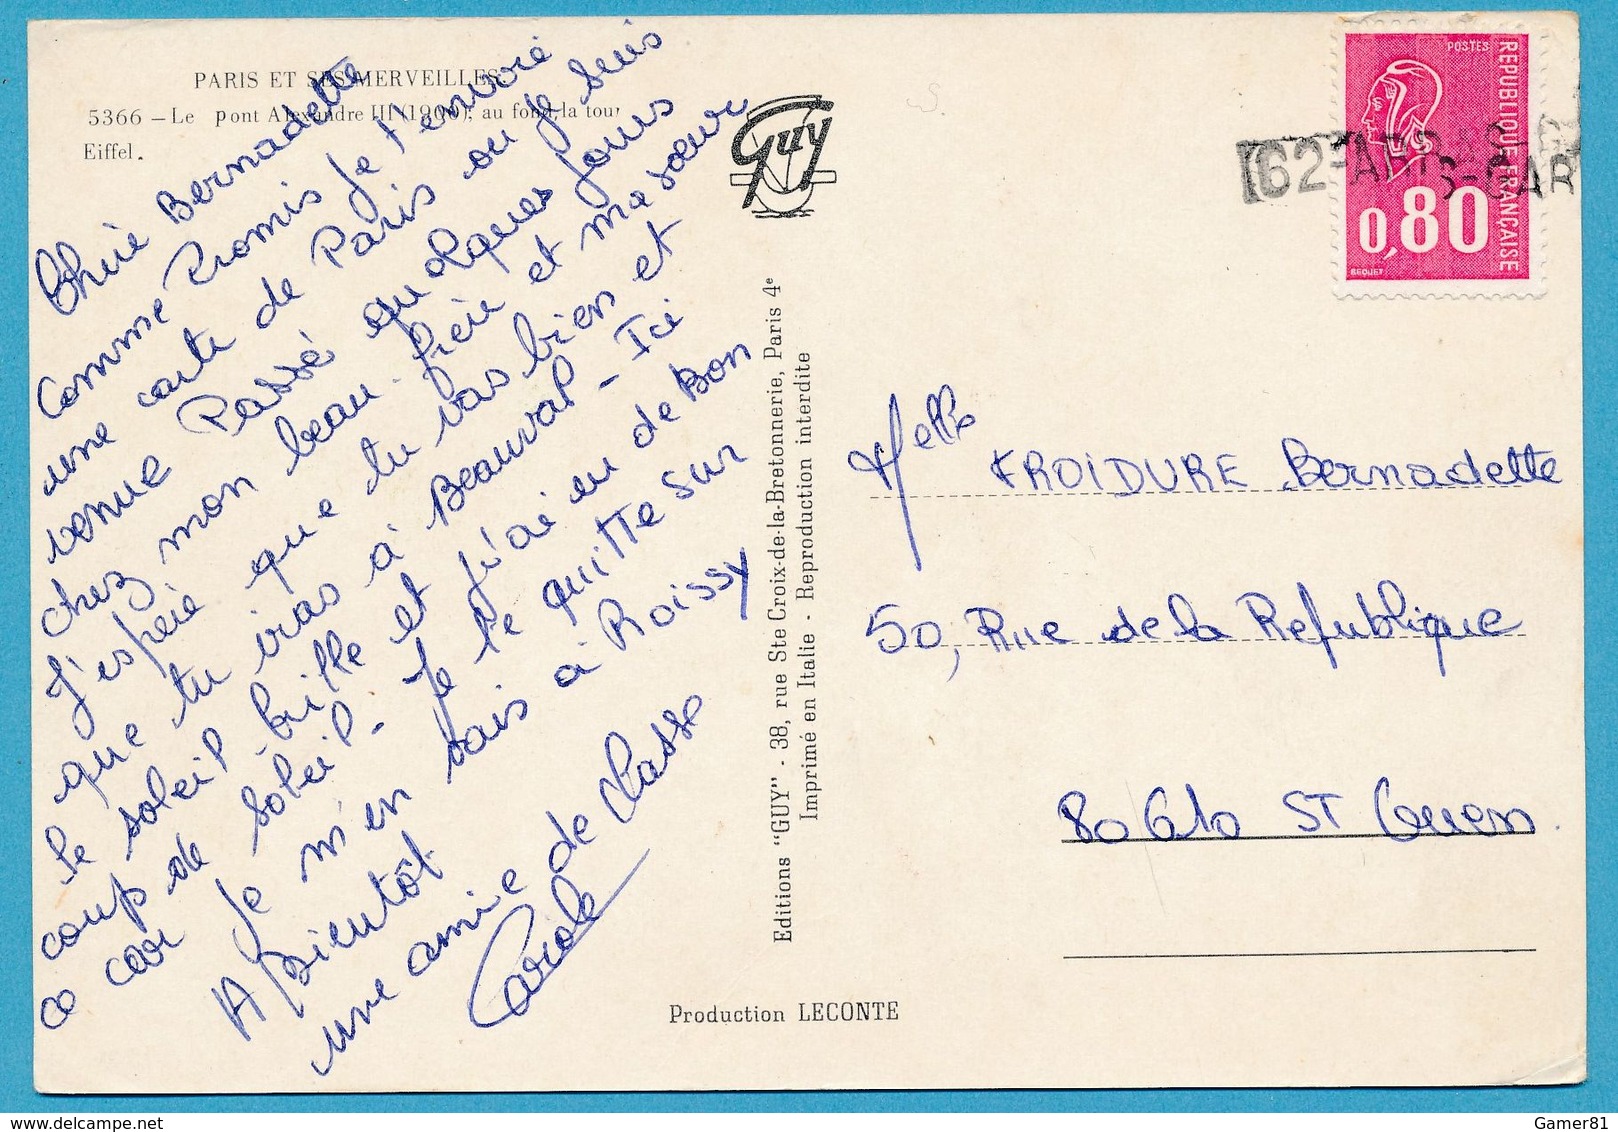 PARIS ET SES MERVEILLES.
5366 – Le pont Alexandre III (1900), au fond, la tour
Eiffel.
Chère Bernadette
Comme Promis je t'envoie
une carte de Paris ou je suis
venue Passé quelques jours
chez mon beau-frère et ma sœur
J'espère que tu vas bien et
que tu iras à Beauval - Ici
le soleil brille et j'ai eu de Bon
coup de soleil - Je te quitte sur
ce car je m'en vais à Roissy
A Bientôt
une amie de classe
Carole
Guy
Editions "GUY" - 38, rue Ste Croix-de-la-Bretonnerie, Paris 4e
Imprimé en Italie - Reproduction interdite
Production LECONTE
POSTES
REPUBLIQUE FRANÇAISE
0,80
BEQUET
62-ARRAS-GAR
Melle FROIDURE Bernadette
50, Rue de la République
80610 ST Ouen
Gamer81